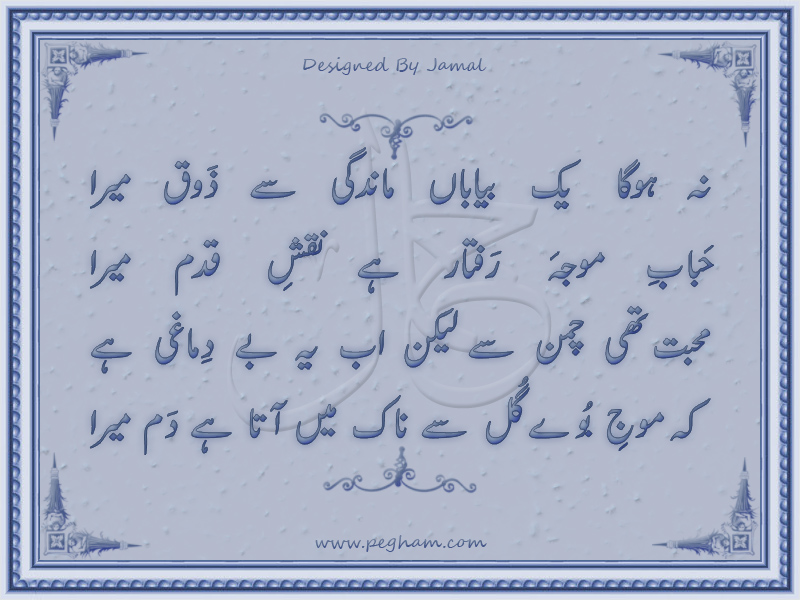 Designed By Jamal
نہ ہوگا یک بیاباں ماندگی سے ذَوق میرا
حَبابِ موجہَ رَفتار ہے نقشِ قدم میرا
محبت تھی چمن سے لیکن اب یہ بے دِماغی ہے
کہ موجِ بُوے گُل سے ناک میں آتا ہے دَم میرا
www.pegham.com